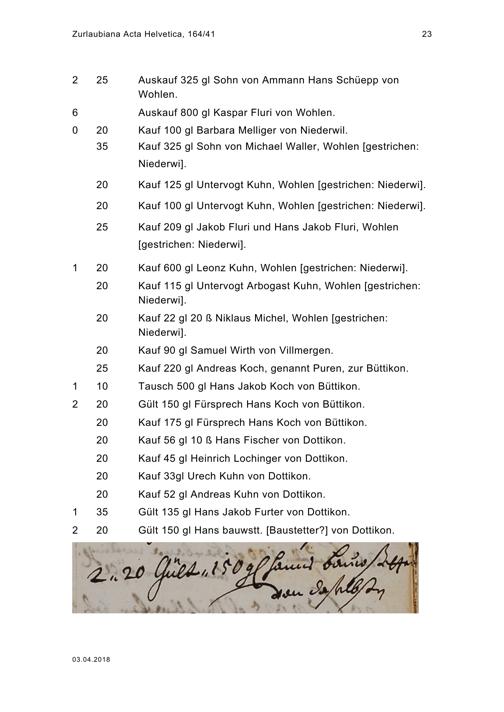 Zurlaubiana Acta Helvetica, 164/41 23
2 25 Auskauf 325 gl Sohn von Ammann Hans Schüepp von
Wohlen.
6 Auskauf 800 gl Kaspar Fluri von Wohlen.
0 20 Kauf 100 gl Barbara Melliger von Niederwil.
35 Kauf 325 gl Sohn von Michael Waller, Wohlen [gestrichen:
Niederwi].
20 Kauf 125 gl Untervogt Kuhn, Wohlen [gestrichen: Niederwi].
20 Kauf 100 gl Untervogt Kuhn, Wohlen [gestrichen: Niederwi].
25 Kauf 209 gl Jakob Fluri und Hans Jakob Fluri, Wohlen
[gestrichen: Niederwi].
1 20 Kauf 600 gl Leonz Kuhn, Wohlen [gestrichen: Niederwi].
20 Kauf 115 gl Untervogt Arbogast Kuhn, Wohlen [gestrichen:
Niederwi].
20 Kauf 22 gl 20 ß Niklaus Michel, Wohlen [gestrichen:
Niederwi].
20 Kauf 90 gl Samuel Wirth von Villmergen.
25 Kauf 220 gl Andreas Koch, genannt Puren, zur Büttikon.
1 10 Tausch 500 gl Hans Jakob Koch von Büttikon.
2 20 Gült 150 gl Fürsprech Hans Koch von Büttikon.
20 Kauf 175 gl Fürsprech Hans Koch von Büttikon.
20 Kauf 56 gl 10 ß Hans Fischer von Dottikon.
20 Kauf 45 gl Heinrich Lochinger von Dottikon.
20 Kauf 33gl Urech Kuhn von Dottikon.
20 Kauf 52 gl Andreas Kuhn von Dottikon.
1 35 Gült 135 gl Hans Jakob Furter von Dottikon.
2 20 Gült 150 gl Hans bauwstt. [Baustetter?] von Dottikon.
2 „ 20 Gült „ 150 gl Hanns
von
03.04.2018